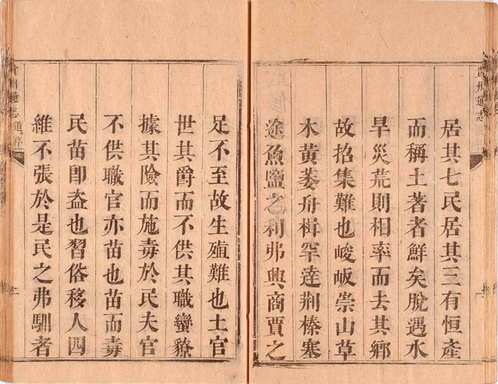 貴州通志
居其七民居其三有恒產
而稱土著者鮮矣脫遇水
旱災荒則相率而去其鄉
故招集難也峻岅崇山草
木黃萎舟楫罕逹荆榛塞
途魚鹽之利弗興商賈之
足不至故生殖難也土官
世其爵而不供其職蠻獠
據其險而施毒於民夫官
不供職官亦苗也苗而毒
民苗卽盗也習俗移人四
維不張於是民之弗馴者
貴州通志